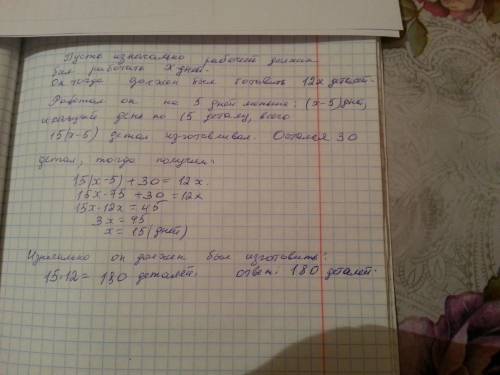 Пусть изначально рабочий должен
был работать x дней.
Он тогда должен был готовить 12x деталей.
Работал он на 5 дней меньше: (x-5) дня,
каждый день по 15 деталу, всего
15(x-5) детал изготовливал. Остался 30
детал, тогда получим:
15(x-5) + 30 = 12x.
15x-75 + 30 = 12x
15x-12x = 45
3x = 45
x = 15 (дней)
Изначально он должен был изготовить:
15·12 = 180 деталей. ответ: 180 деталей.